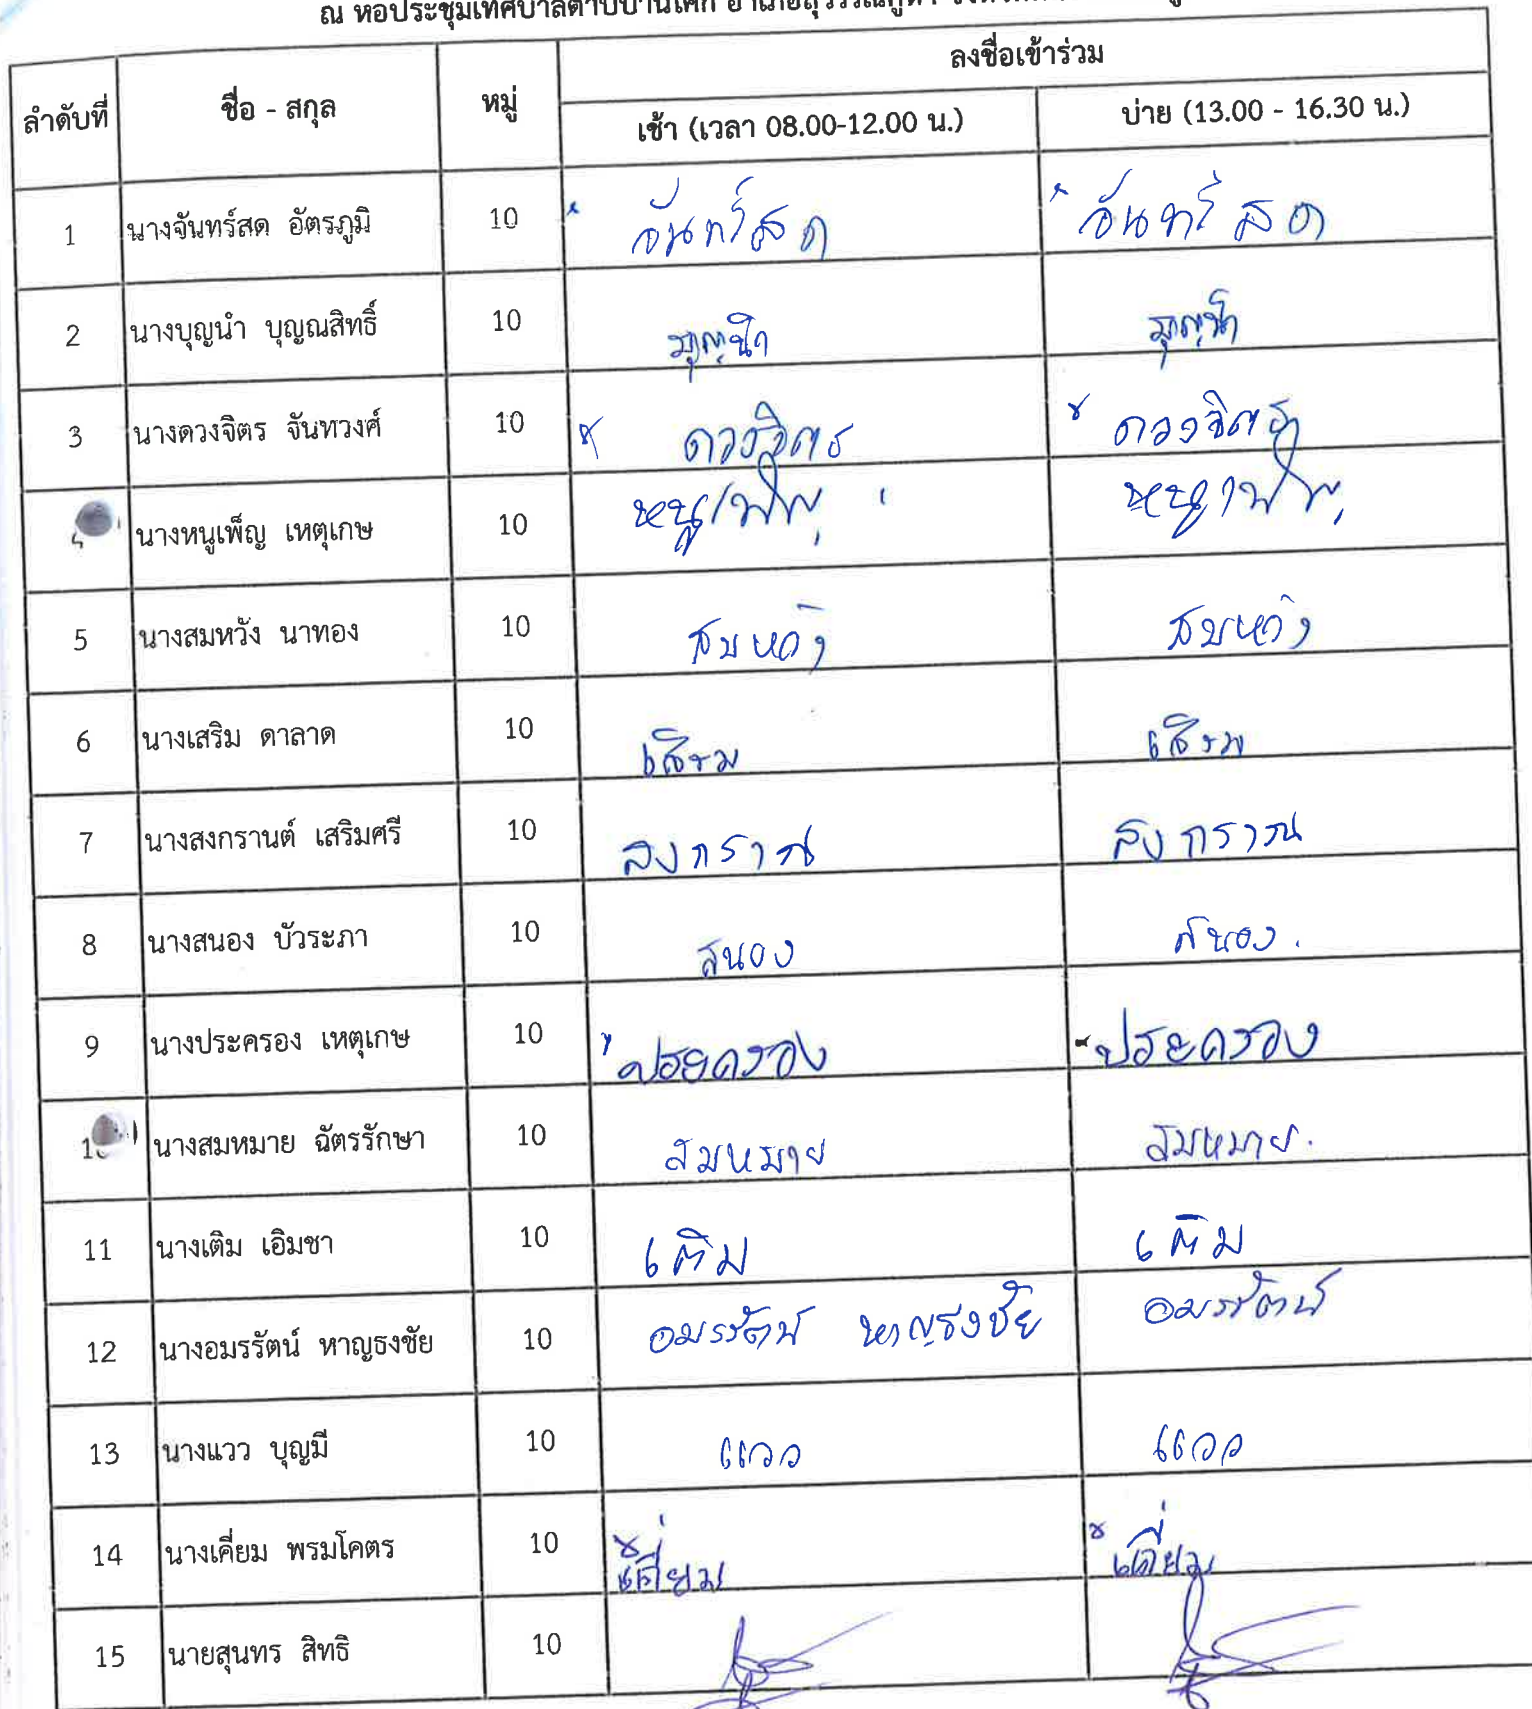 ณ หอประชุมเทศบาลตำบบ้านโคก อำเภอสุวรรณคูหา
ลำดับที่ ชื่อ - สกุล หมู่ ลงชื่อเข้าร่วม
เช้า (เวลา 08.00-12.00 น.) บ่าย (13.00 - 16.30 น.)
1 นางจันทร์สด อัตรภูมิ 10 จันทร์สด จันทร์สด
2 นางบุญนำ บุญณสิทธิ์ 10 บุญนำ บุญนำ
3 นางดวงจิตร จันทวงศ์ 10 ดวงจิตร ดวงจิตร
4 นางหนูเพ็ญ เหตุเกษ 10
5 นางสมหวัง นาทอง 10 สมหวัง สมหวัง
6 นางเสริม ดาลาด 10 เสริม เสริม
7 นางสงกรานต์ เสริมศรี 10 สงกราณ สงกราณ
8 นางสนอง บัวระภา 10 สนอง สนอง.
9 นางประครอง เหตุเกษ 10 ประครอง ประครอง
10 นางสมหมาย ฉัตรรักษา 10 สมหมาย สมหมาย.
11 นางเติม เอิมชา 10 เติม เติม
12 นางอมรรัตน์ หาญธงชัย 10 อมรรัตน์ หาญธงชัย อมรรัตน์
13 นางแวว บุญมี 10 แวว แวว
14 นางเคี่ยม พรมโคตร 10 เคี่ยม เคี่ยม
15 นายสุนทร สิทธิ 10